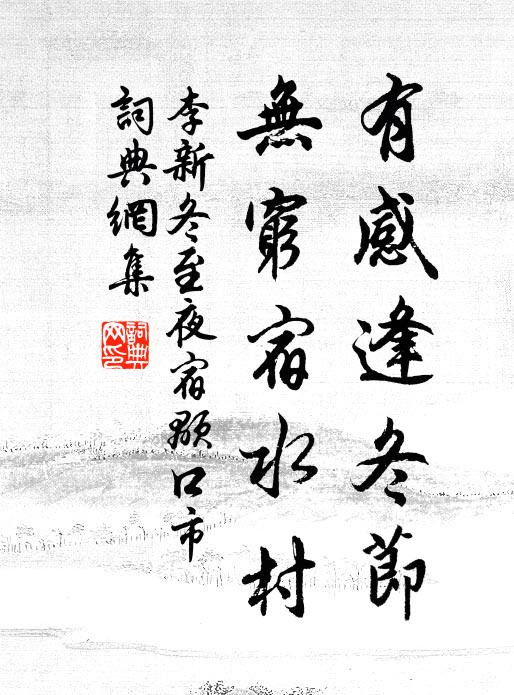 有感逢冬節
無窮宿水村
李新冬至夜宿顥口市
詞典網集
詞典
网印